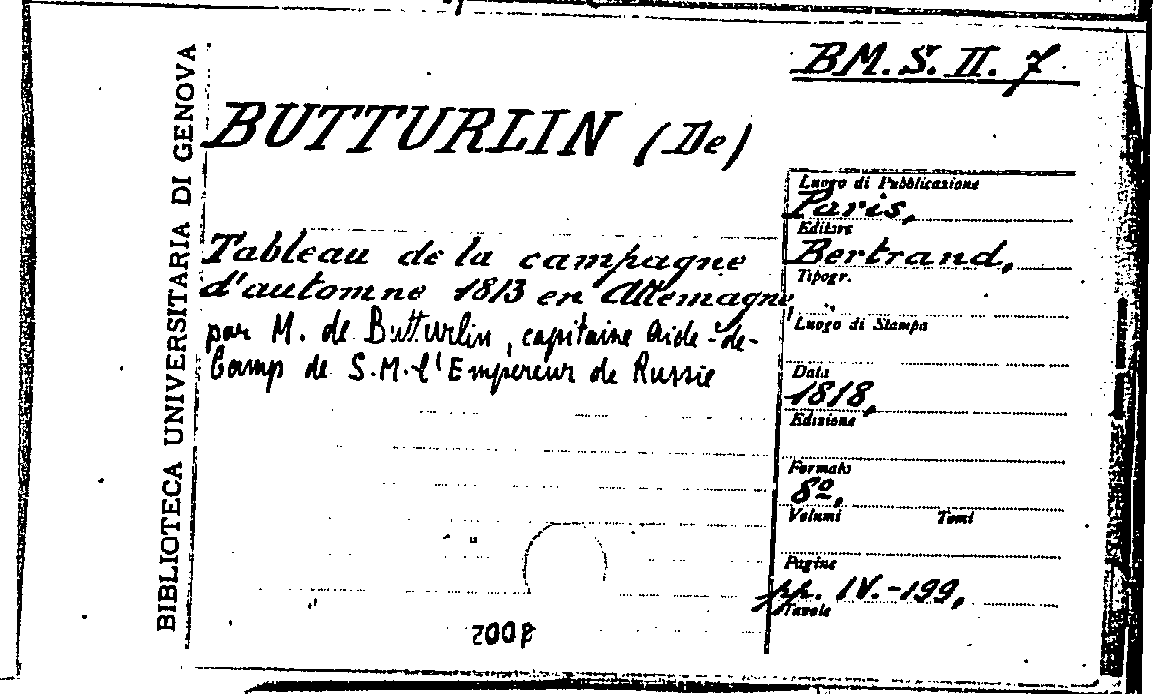 BIBLIOTECA UNIVERSITARIA DI GENOVA
BM. S. II. 7
BUTTURLIN (De)
Tableau de la campagne
d'automne 1813 en Allemagne,
par M. de Butturlin, capitaine aide-de-
Camp de S.M. l'Empereur de Russie
Luogo di Pubblicazione
Paris,
Editore
Bertrand,
Tipogr.
Luogo di Stampa
Data
1818,
Edizione
Formato
8º,
Volumi Tomi
Pagine
pp. IV.-199,
Tavole